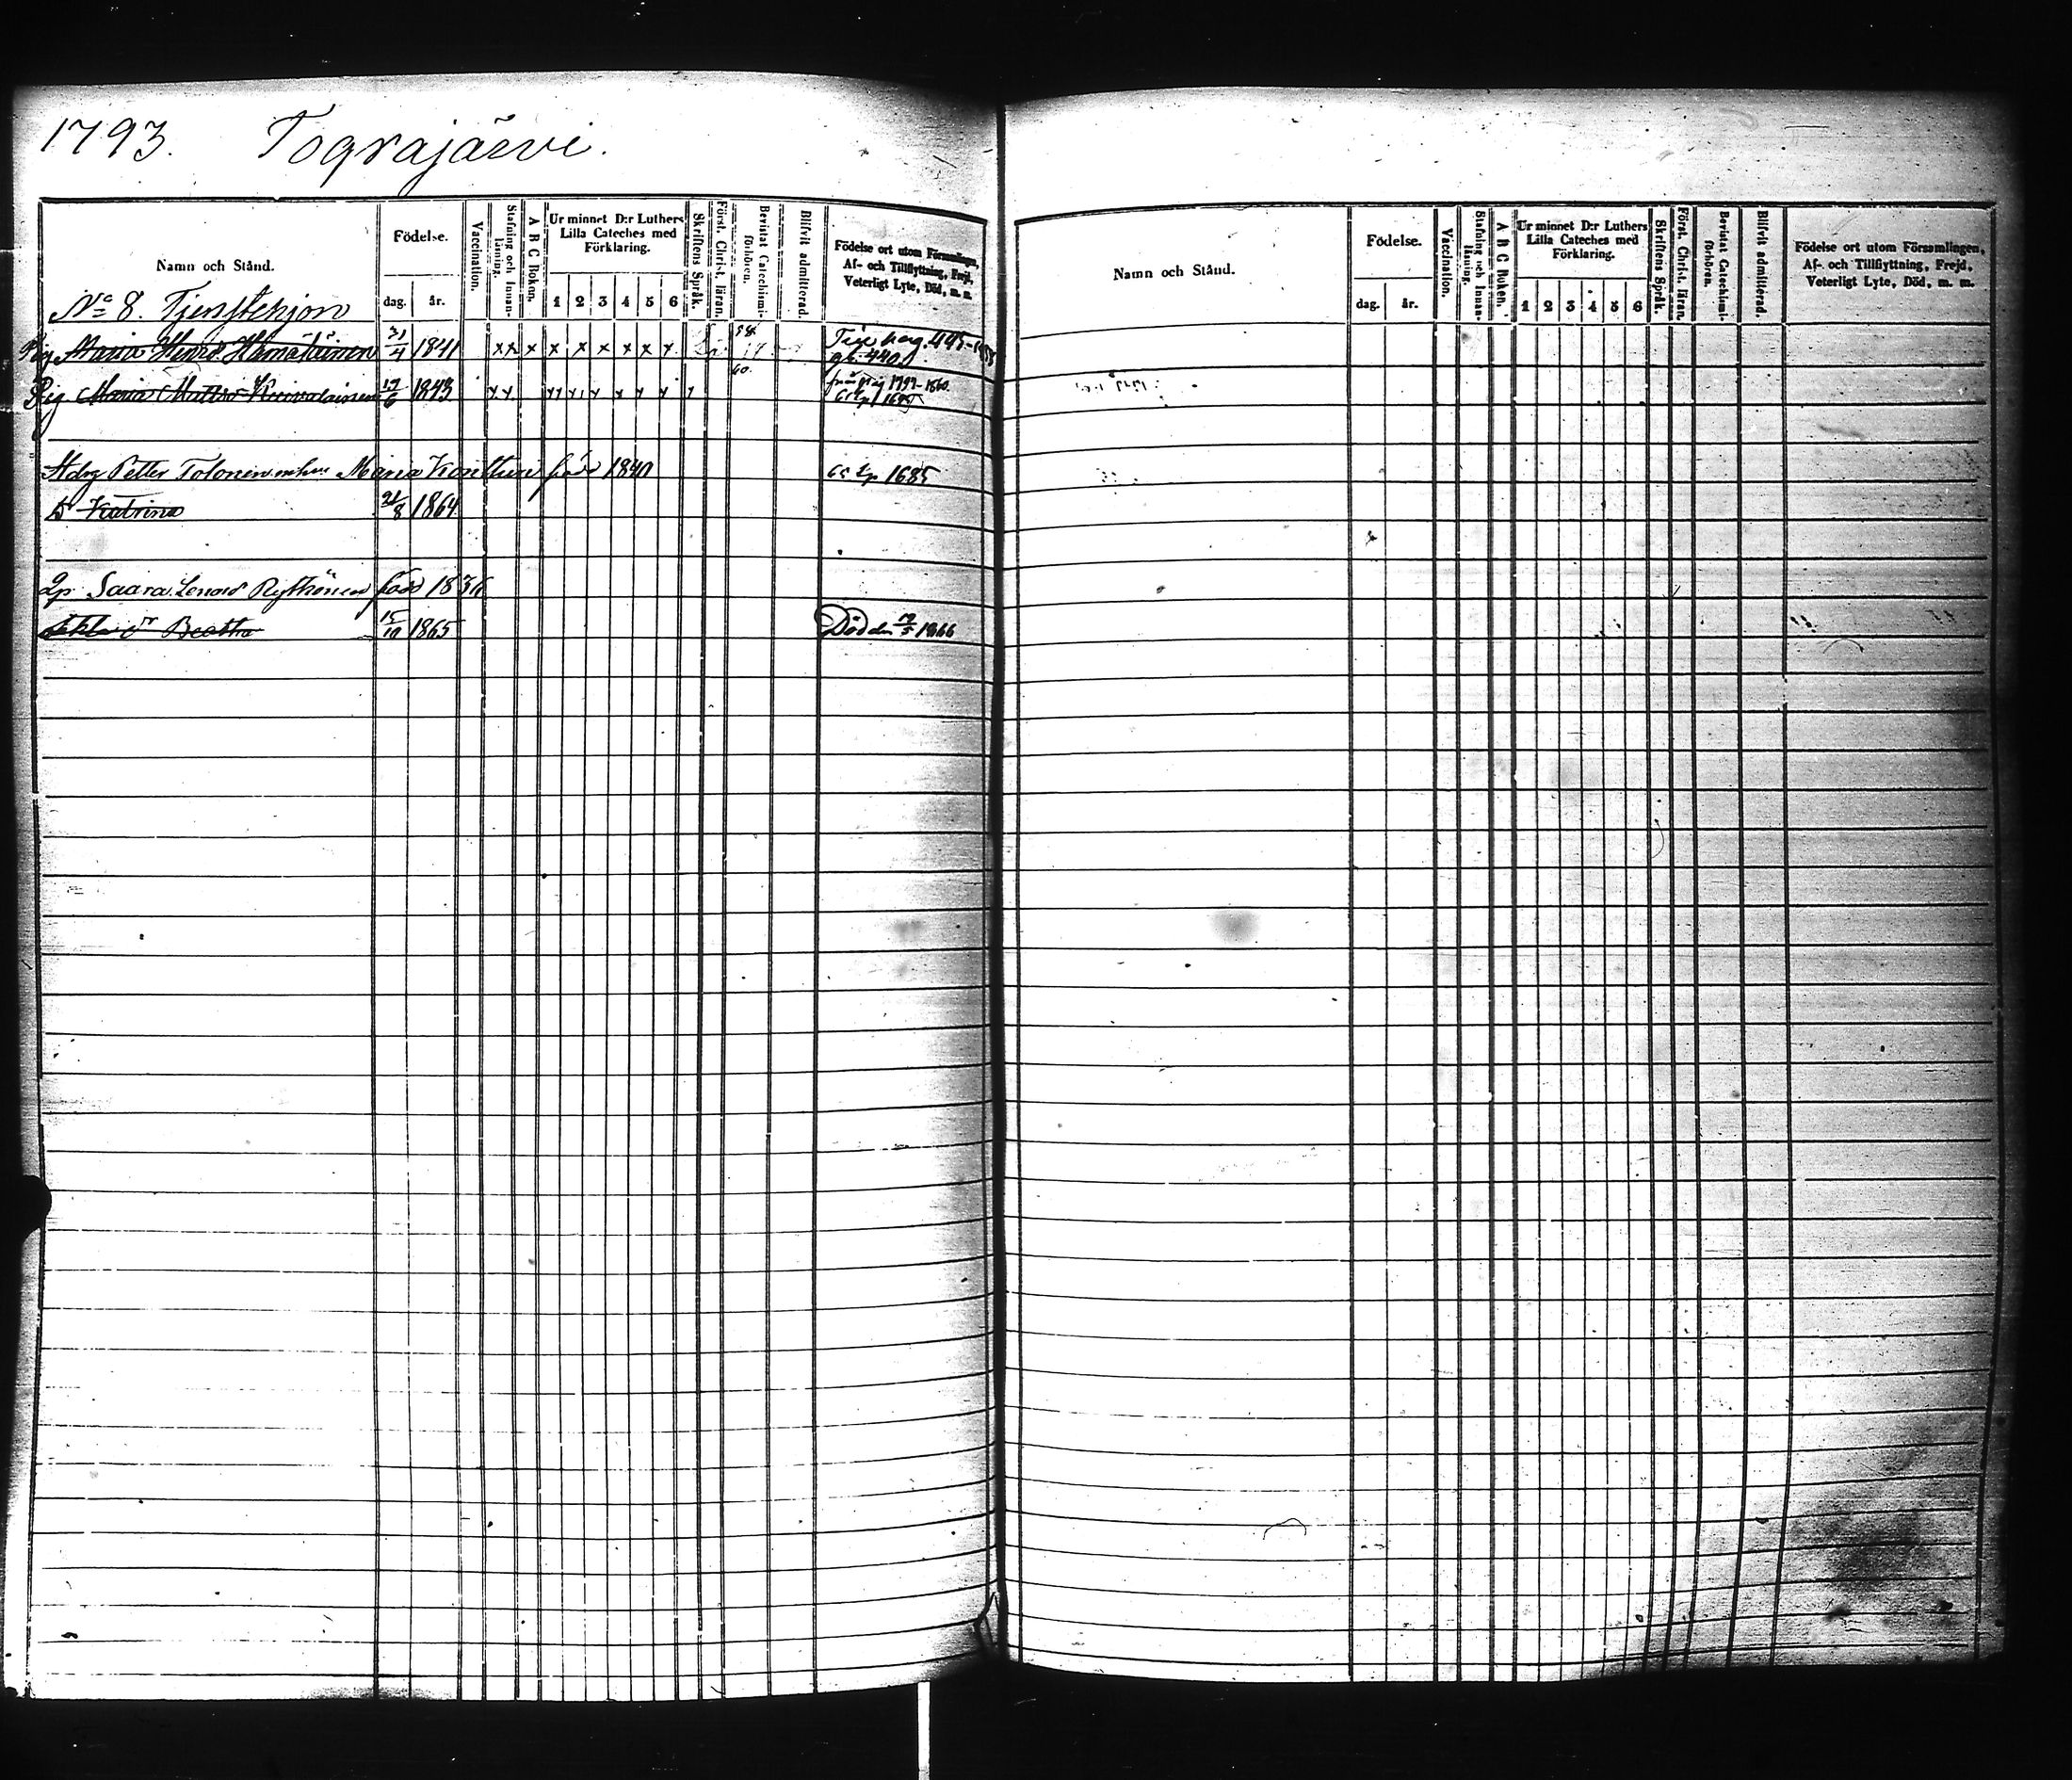 1793. Tograjärvi.
Namn och Stånd.
Födelse.
dag. år.
Vaccination.
Stafning och Innan-läsning.
A B C Boken.
Ur minnet D:r Luthers
Lilla Cateches med
Förklaring.
1 2 3 4 5 6
Skriftens Språk.
Först. Christ. läran.
Bevistat Catechismi-förhören.
Blifvit admitterad.
Födelse ort utom Församlingen,
Af- och Tillflyttning, Frejd,
Veterligt Lyte, Död, m. m.
No 8. Tjenstehjon
Pig Maria 4 1841 x x x x x x x x x 58
60.
Pig Maria Mattsd 17/6 1843 1797-1860.
Petter Tolonen Maria född 1840 1685
D Katrina 21/8 1864
Saara född 1836
Beatha 15/10 1865 Död den 1866
Namn och Stånd.
Födelse.
dag. år.
Vaccination.
Stafning och Innan-läsning.
A B C Boken.
Ur minnet D:r Luthers
Lilla Cateches med
Förklaring.
1 2 3 4 5 6
Skriftens Språk.
Först. Christ. läran.
Bevistat Catechismi-förhören.
Blifvit admitterad.
Födelse ort utom Församlingen,
Af- och Tillflyttning, Frejd,
Veterligt Lyte, Död, m. m.